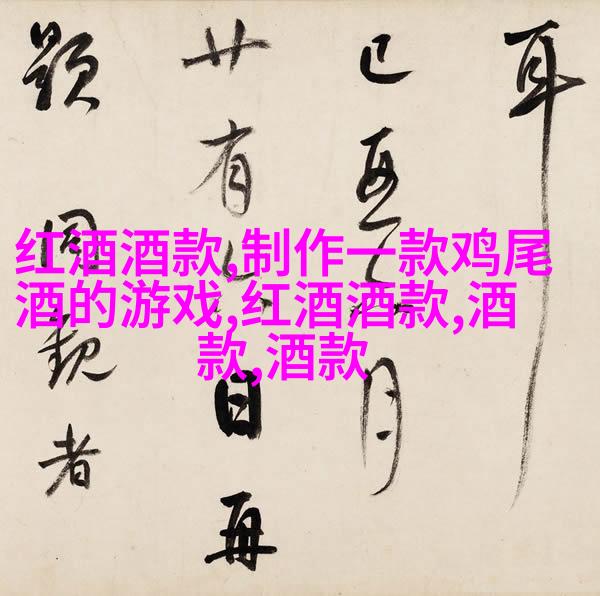 红酒酒款,制作一款鸡尾
酒的游戏,红酒酒款,酒
款,酒款
耳
月
廿有日再
題同觀者